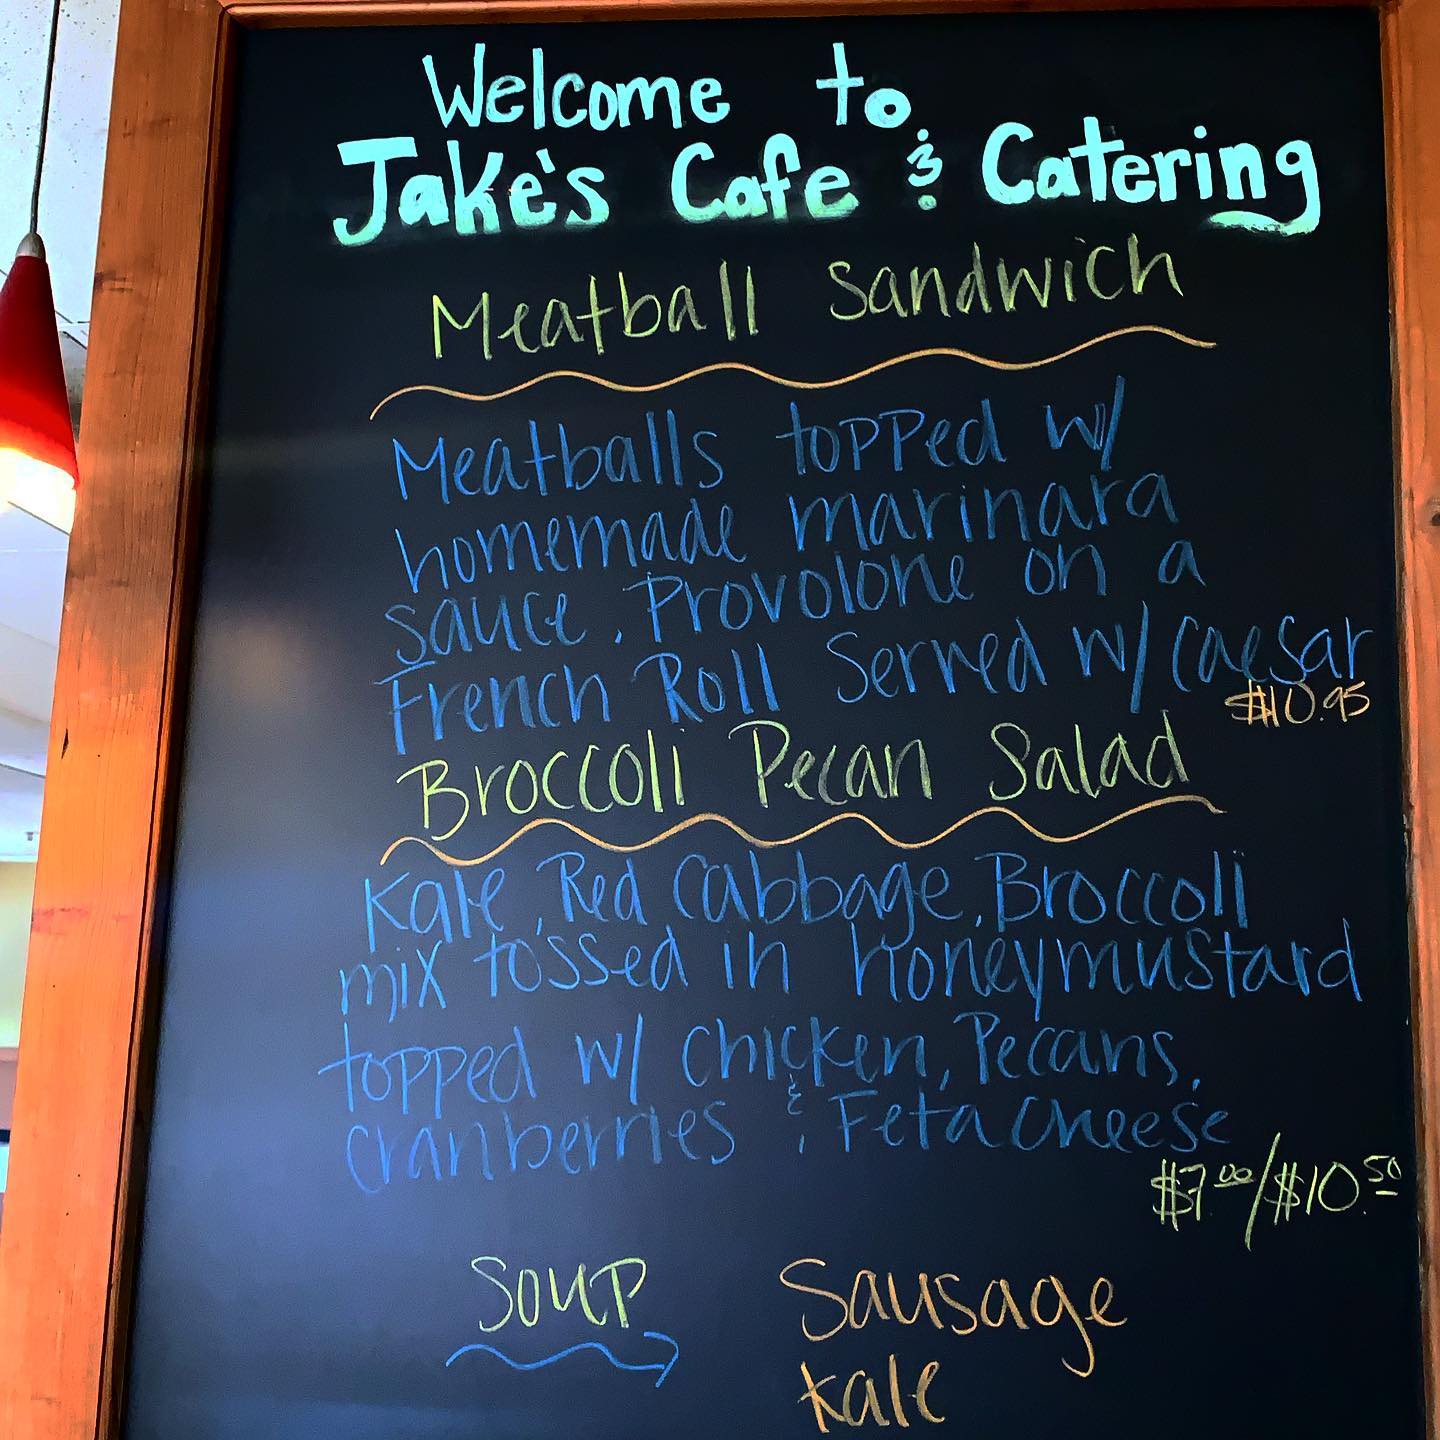 Welcome to
Jake's Cafe & Catering
Meatball Sandwich
Meatballs topped w/
homemade marinara
sauce, Provolone on a
French Roll Served w/ caesar
$10.95
Broccoli Pecan Salad
Kale, Red Cabbage, Broccoli
mix tossed in honeymustard
topped w/ chicken, Pecans,
cranberries & Feta cheese
$7.00/$10.50
Soup Sausage
kale